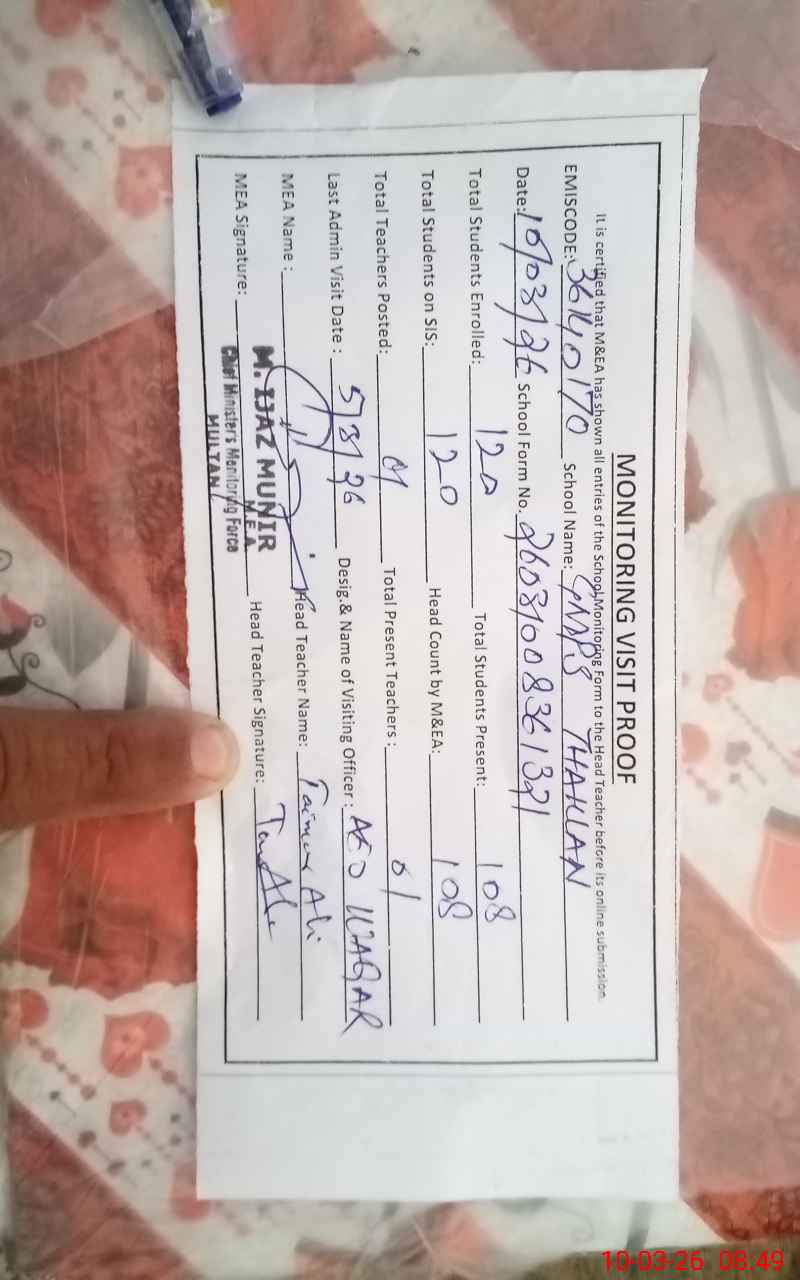 MONITORING VISIT PROOF
It is certified that M&EA has shown all entries of the School Monitoring Form to the Head Teacher before its online submission.
EMISCODE: 36140170 School Name: GMPS THAHLAN
Date: 10/03/26 School Form No. 26031008361321
Total Students Enrolled: 120 Total Students Present: 108
Total Students on SIS: 120 Head Count by M&EA: 108
Total Teachers Posted: 01 Total Present Teachers : 01
Last Admin Visit Date : 5/3/26 Desig.& Name of Visiting Officer : AEO WAQAR
MEA Name : Head Teacher Name: Taimur Ali
M. IJAZ MUNIR
M.E.A
MEA Signature: Head Teacher Signature:
Chief Minister's Monitoring Force
MULTAN
10-03-26 08:49